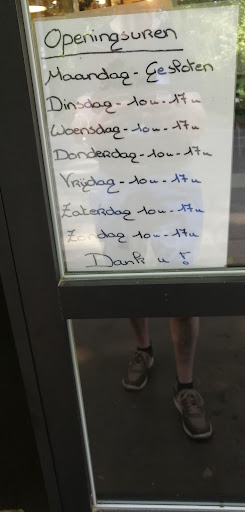 Openingsuren
Maandag - Gesloten
Dinsdag - 10u - 17u
Woensdag - 10u - 17u
Donderdag - 10u - 17u
Vrijdag - 10u - 17u
Zaterdag 10u - 17u
Zondag 10u - 17u
Dank u !